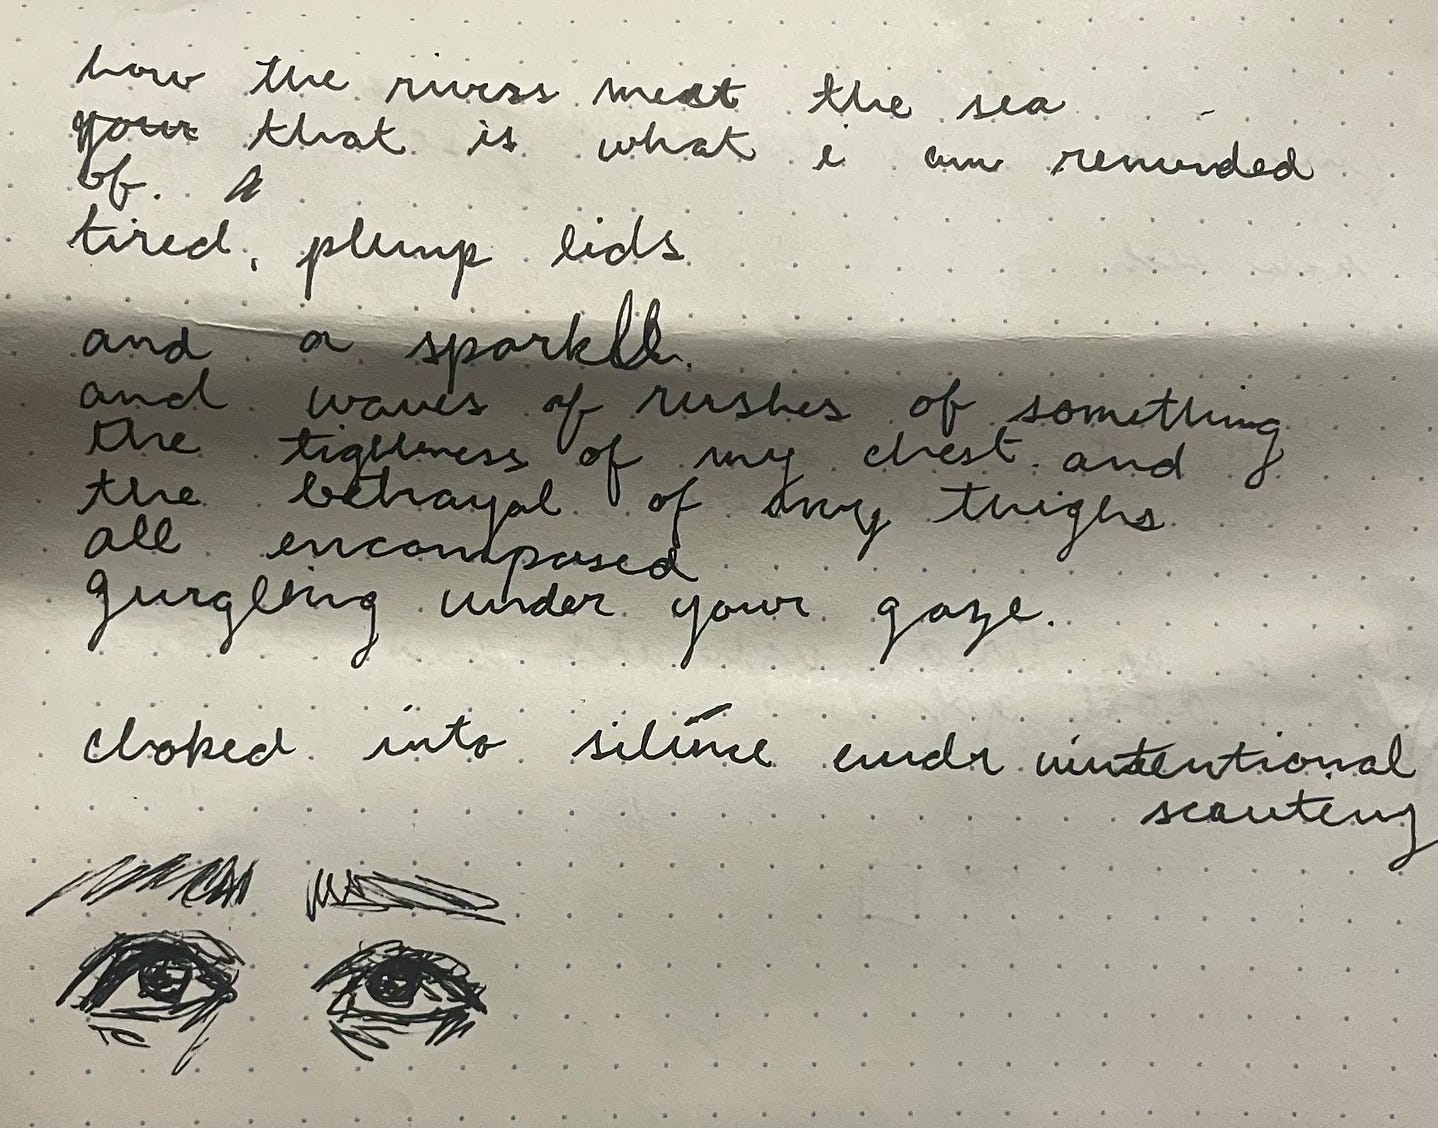 how the rivers meet the sea
that is what i am reminded
of.
tired, plump lids
and a sparkle.
and waves of rushes of something
the tightness of my chest and
the betrayal of my thighs
all encompased
gurgling under your gaze.
cloked into silince
scouting